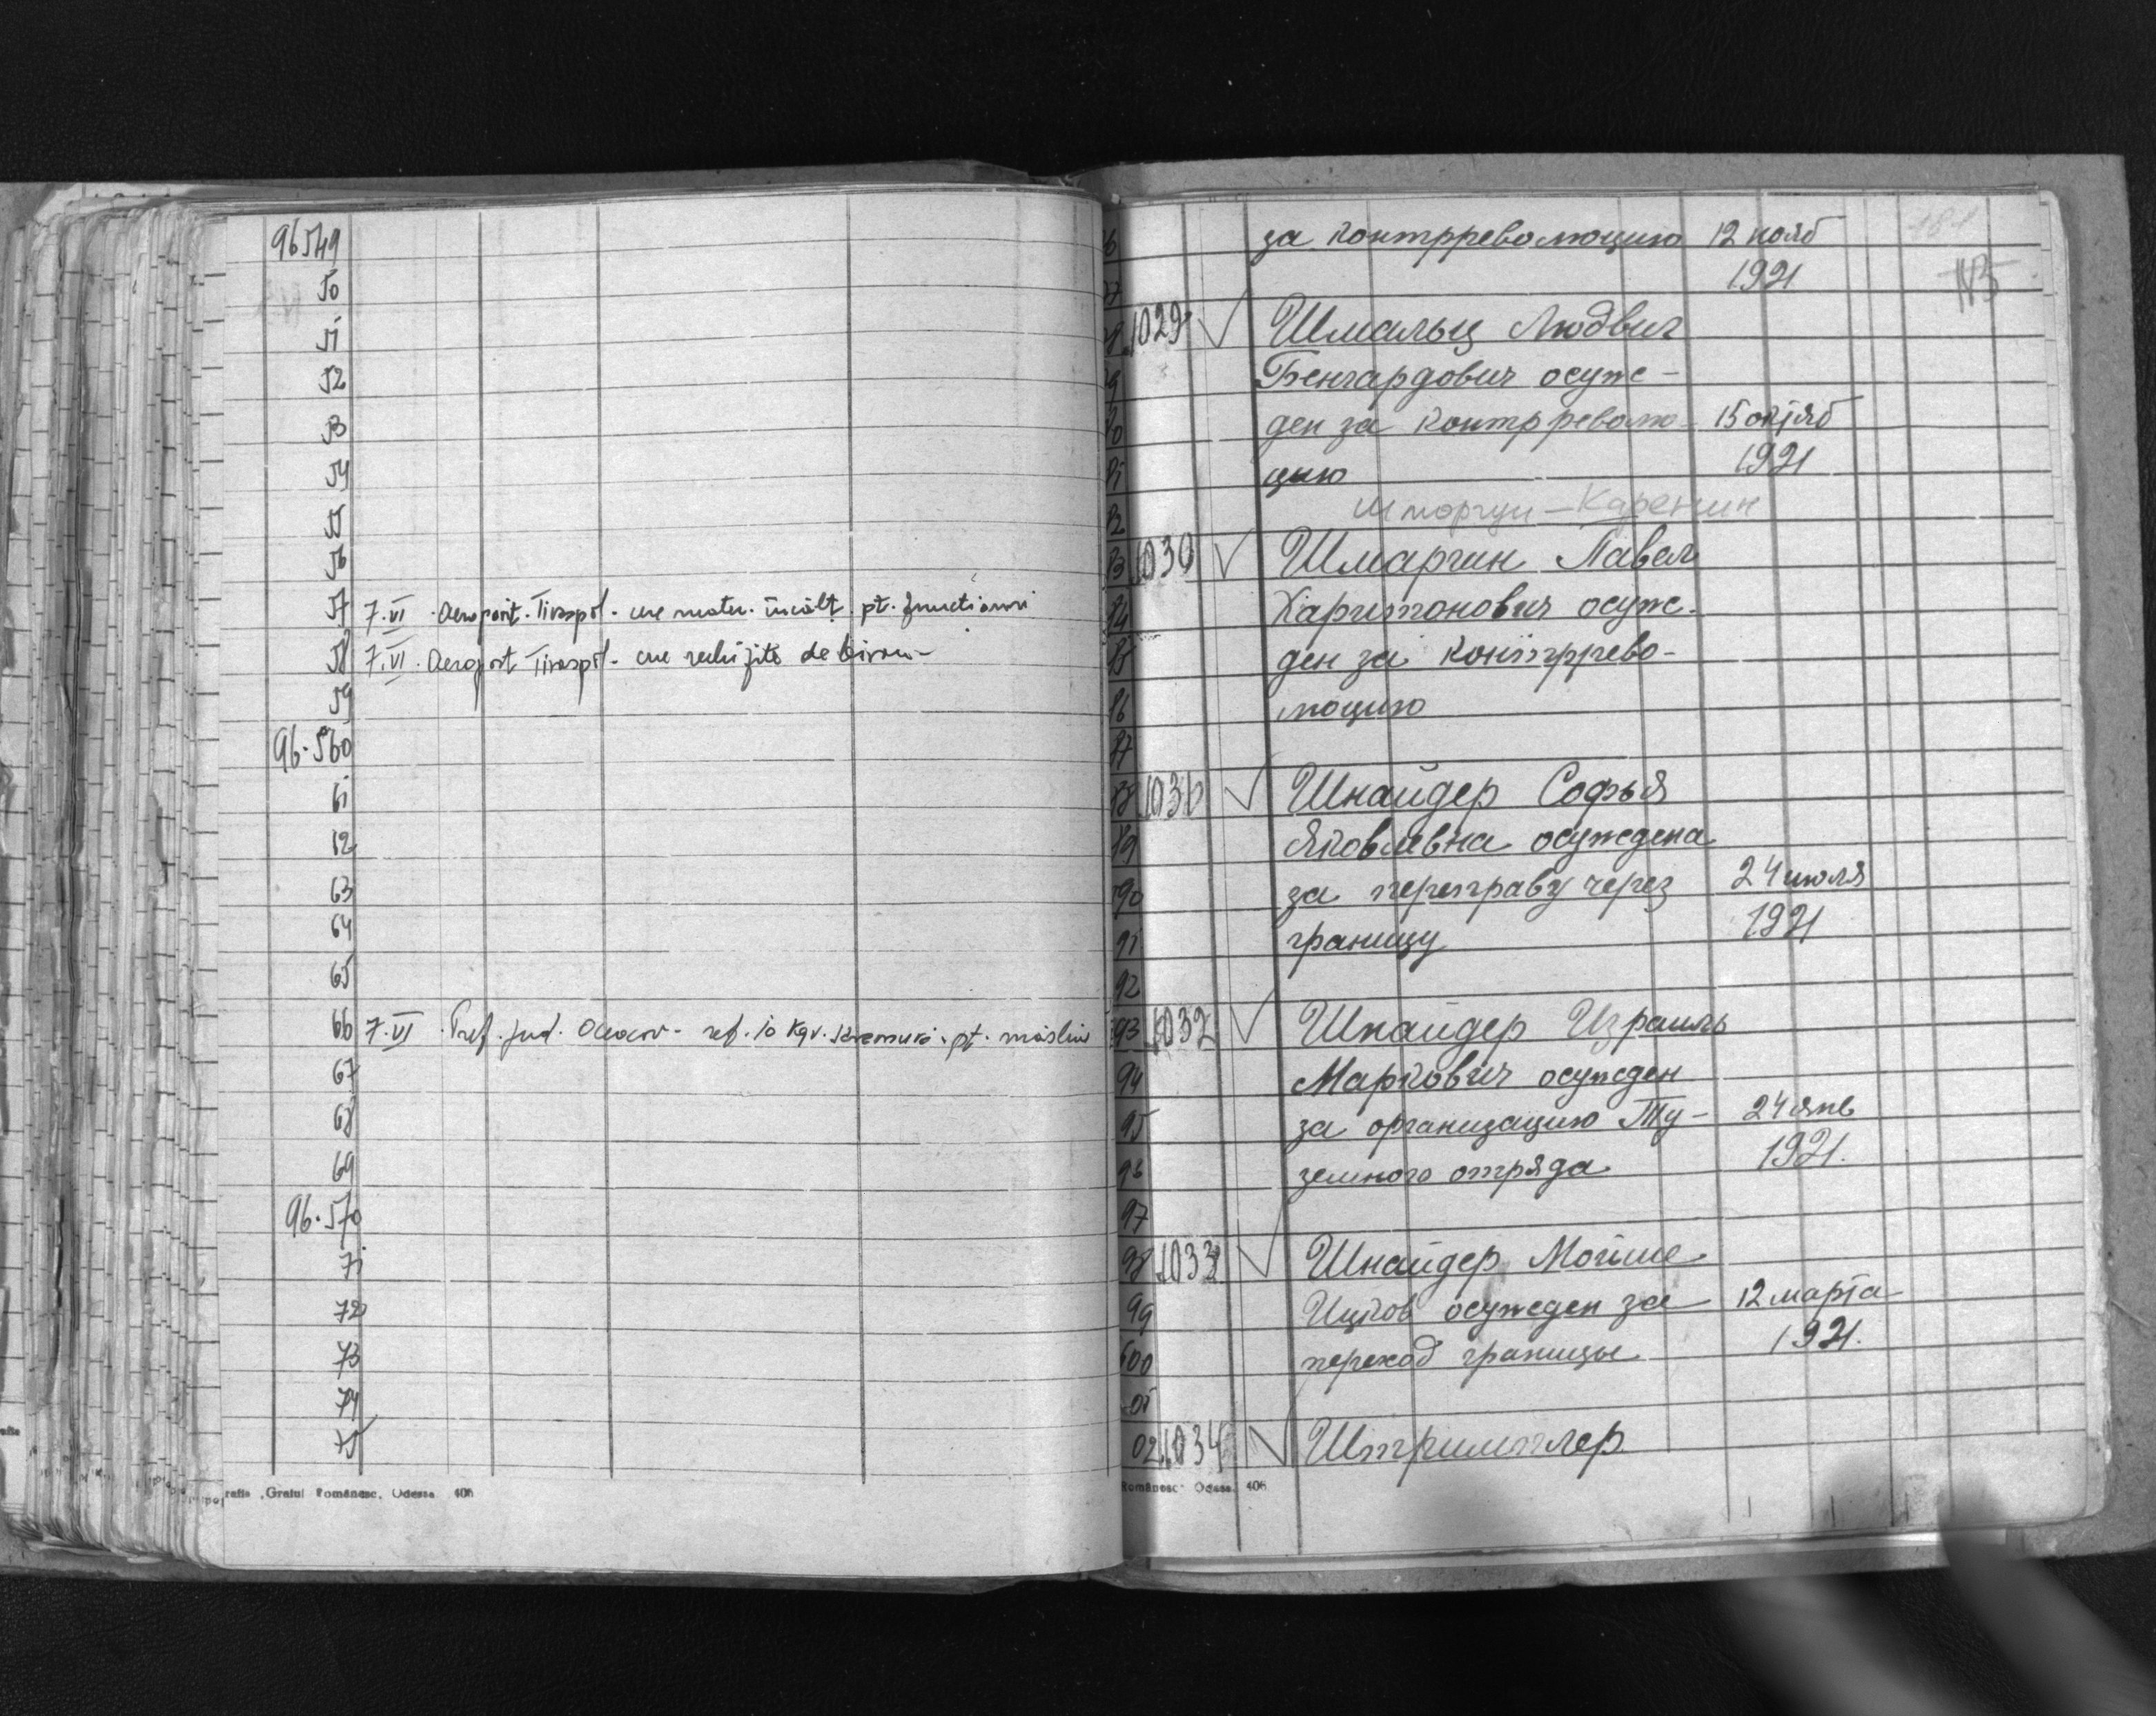 96549
50
51
52
53
54
55
56
57 7.VI Aeroport. Tiraspol. cere mater. încălț. pt. funcționari
58 7.VI. Aeroport Tiraspol. cere rechizite de birou-
59
96.560
61
12
63
64
65
66 7.VI Pref. jud. Oceacov- ref. 10 kgr. pt. măsline
67
68
69
96.570
71
72
73
74
75
rafia „Graiul Românesc„ Odessa 406
за контрреволюцию 12 нояб
1921
1029 Шмальц Людвиг
Бенгардович осуж-
80 ден за контрреволю- 15 октяб
81 цию 1921
82 Каренин
83 1030 Шмаргин Павел
84 Харитонович осуж-
85 ден за контррево-
86 люцию
87
88 1031 Шнайдер Софья
89 Яковлевна осуждена
90 за переправу через 24 июля
91 границу 1921
92
93 1032 Шнайдер Израиль
94 Маркович осужден
95 за организацию Ту- 24 янв
96 земного отряда 1921.
97
98 1033 Шнайдер Мойше
99 Ицков осужден за 12 марта
600 переход границы 1921.
01
02 1034 Штримплер
Românesc" Odessa 406